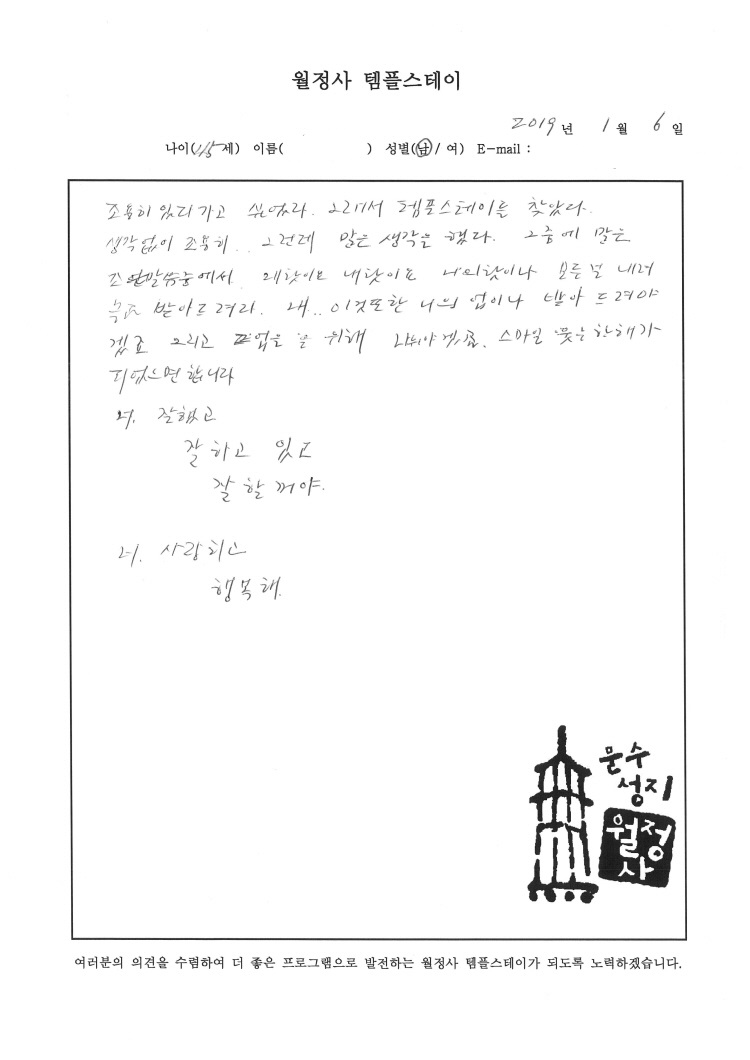 월정사 템플스테이
2019년 1월 6일
나이(45세) 이름( ) 성별(남/여) E-mail :
조용히 있다가고 싶었다. 그래서 템플스테이를 찾았다.
생각없이 조용히.. 그런데 많은 생각을 했다. 그중에 많은
말씀중에서 네탓이요 내탓이요
받아드려라. 네.. 이것또한 나의 업이니 받아 드려야
겠죠 그리고 업을 위해 스마일 꽃은 한해가
되었으면 합니다
너. 잘했고
잘하고 있고
잘 할꺼야.
너. 사랑하고
행복해.
문수
성지
월정
사
여러분의 의견을 수렴하여 더 좋은 프로그램으로 발전하는 월정사 템플스테이가 되도록 노력하겠습니다.